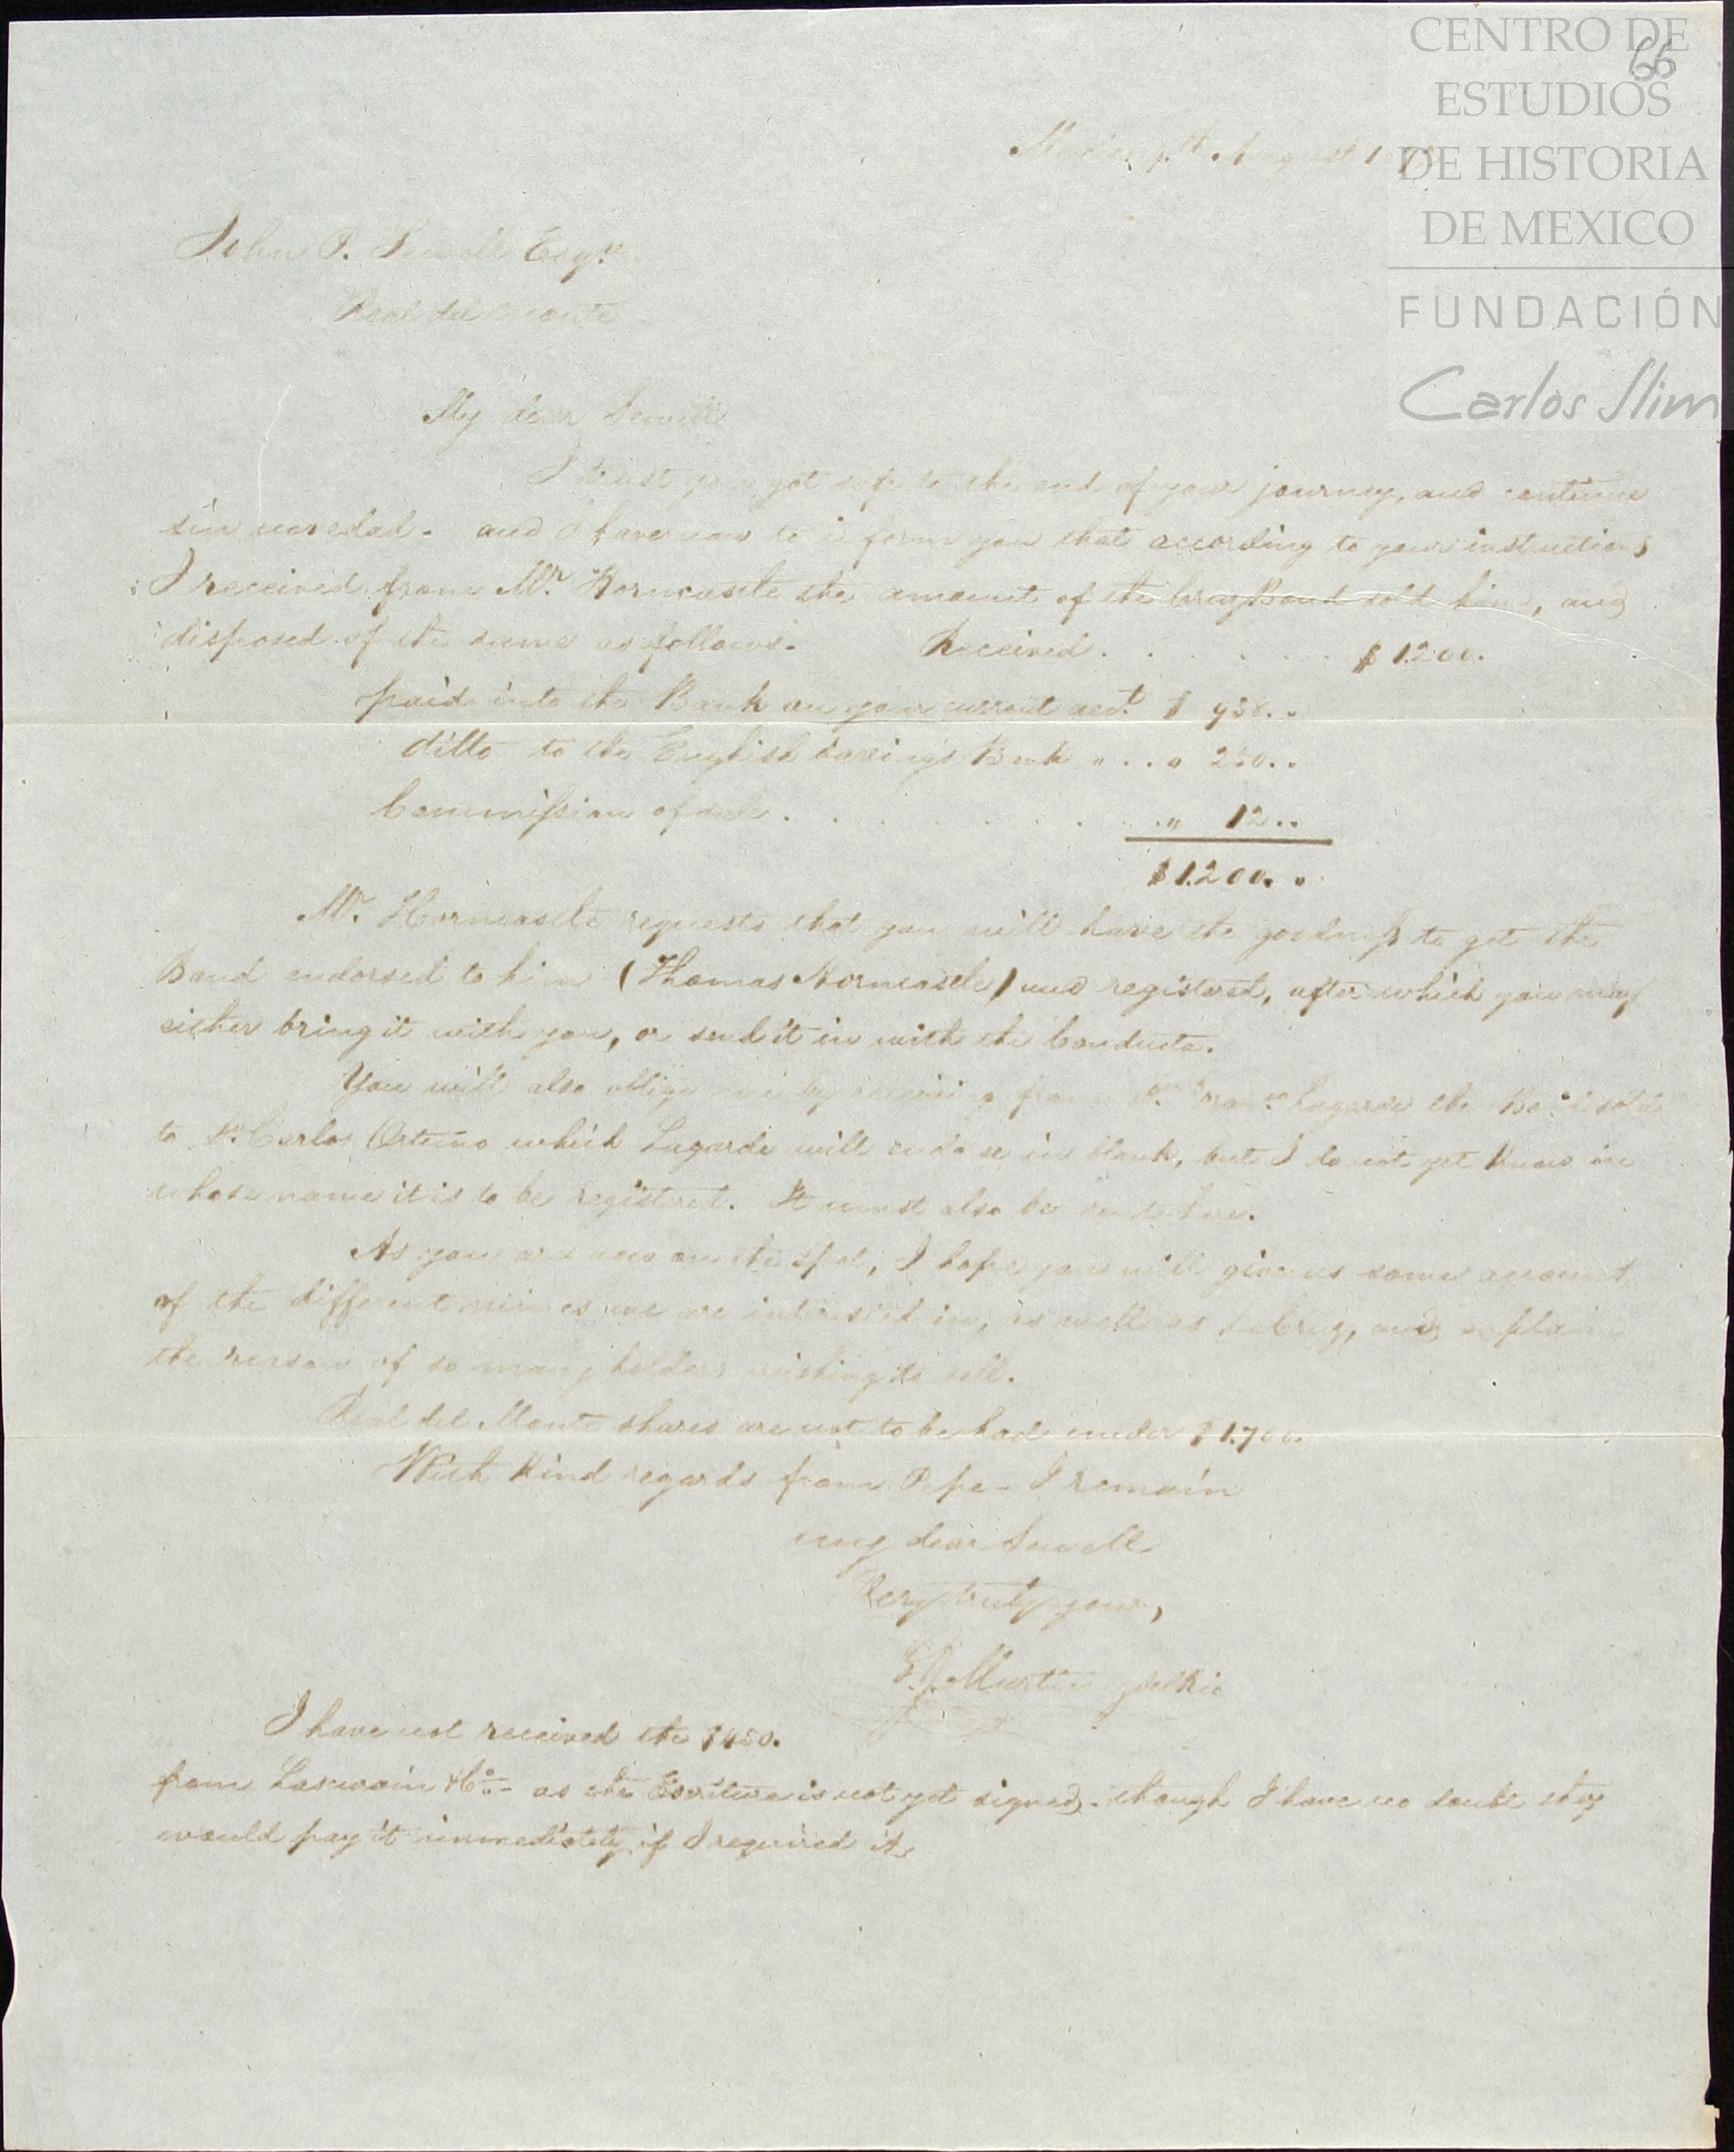 CENTRO DE
66
ESTUDIOS
DE HISTORIA
DE MEXICO
FUNDACIÓN
Carlos Slim
Mexico August
John P. Sewell Esqre
Real del Monte
My dear Sewell
I trust you got safe to the end of your journey, and continue
sin novedad. and I have now to inform you that according to your instructions
I received from Mr. Horncastle the amount of the Cruz Bond sold him, and
disposed of the same as follows. Received . . . . . . $ 1.200.
paid into the Bank on your current acct. $ 938. "
ditto to the English Savings Bank " . . " 250. "
Commifsion of sale . . . . . . " 12. "
$ 1.200. "
Mr. Horncastle requests that you will have the goodnefs to get the
Bond endorsed to him (Thomas Horncastle) and registered, after which you may
either bring it with you, or send it in with the Conducta.
You will also oblige me by receiving from Dn. Franco Lagarde the Bond sold
to Dn. Carlos which Lagarde will endorse in blank, but I do not yet know in
whose name it is to be registered. It must also be sent here.
As you are now on the spot, I hope you will give us some account
of the different mines we are interested in, as well as LaCruz, and explain
the reason of so many holders wishing to sell.
Real del Monte shares are not to be had under $ 1.700.
With Kind regards from Pepe - I remain
my dear Sewell
Very truly yours,
Martinez del Rio
I have not received the $450.
from & Co. - as the Escritura is not yet signed. though I have no doubt they
would pay it immediately if I required it.